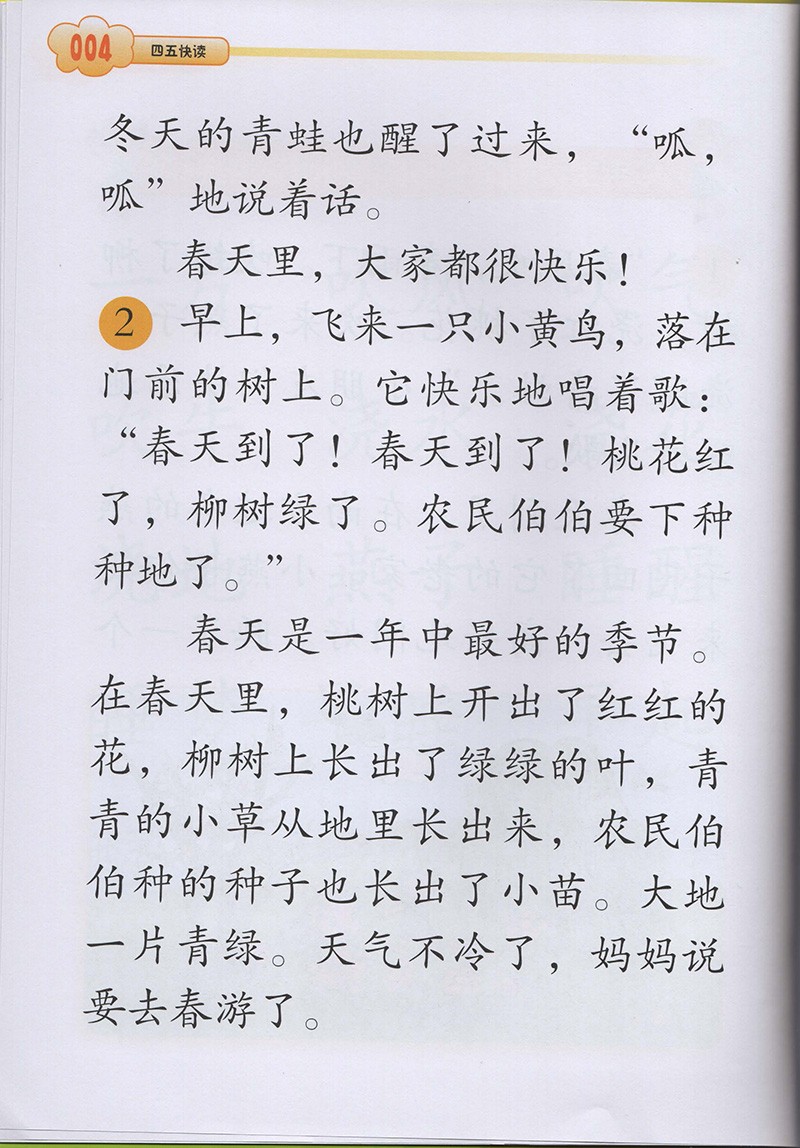 004 四五快读
冬天的青蛙也醒了过来，“呱，
呱”地说着话。
春天里，大家都很快乐！
2 早上，飞来一只小黄鸟，落在
门前的树上。它快乐地唱着歌：
“春天到了！春天到了！桃花红
了，柳树绿了。农民伯伯要下种
种地了。”
春天是一年中最好的季节。
在春天里，桃树上开出了红红的
花，柳树上长出了绿绿的叶，青
青的小草从地里长出来，农民伯
伯种的种子也长出了小苗。大地
一片青绿。天气不冷了，妈妈说
要去春游了。